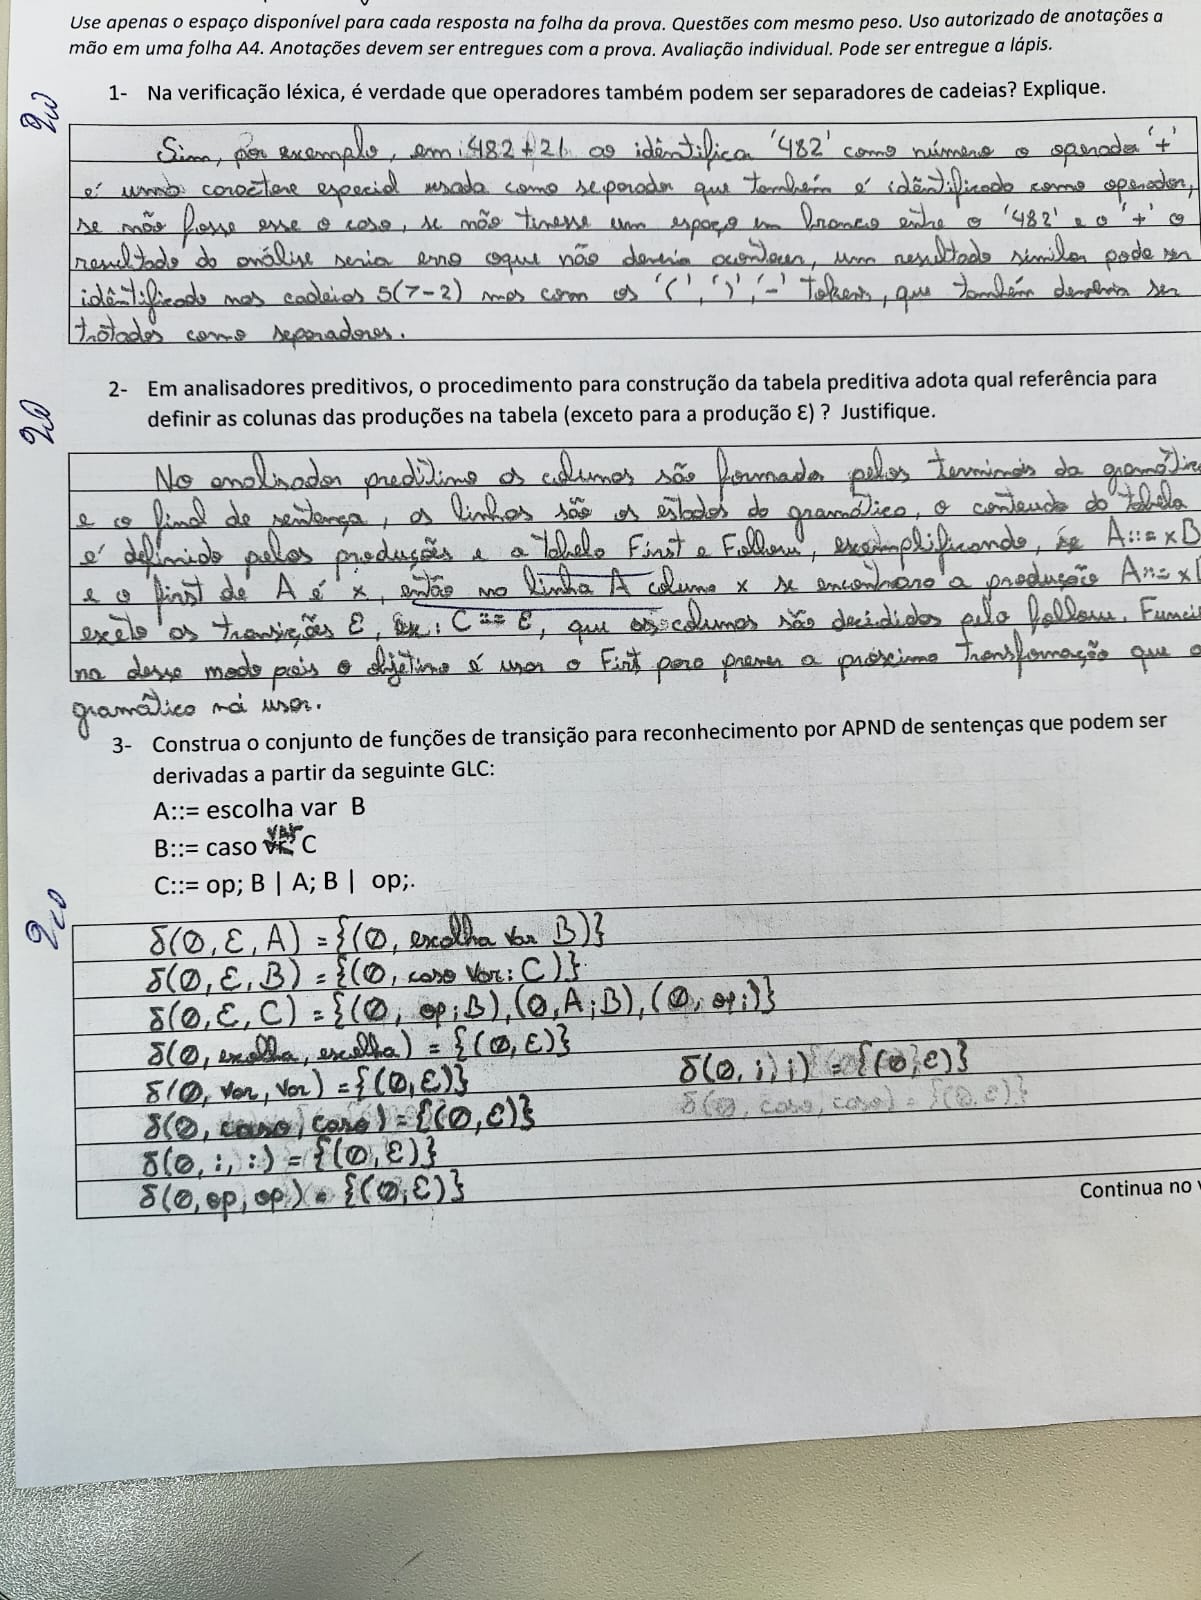 Use apenas o espaço disponível para cada resposta na folha da prova. Questões com mesmo peso. Uso autorizado de anotações a
mão em uma folha A4. Anotações devem ser entregues com a prova. Avaliação individual. Pode ser entregue a lápis.
1- Na verificação léxica, é verdade que operadores também podem ser separadores de cadeias? Explique.
Sim, por exemplo, em: 482 + 21 ao idêntifica '482' como número o operador '+'
é uma caractere especial usada como separador que também é idêntificado como operador,
se não fosse esse o caso, se não tivesse um espaço em branco entre o '482' e o '+' o
resultado do análise seria erro oque não deveria acontecer, um resultado similar pode ser
idêntificado nas cadeias 5(7-2) mas com os '(', ')', '-' tokens, que também deveria ser
trátados como separadores.
2- Em analisadores preditivos, o procedimento para construção da tabela preditiva adota qual referência para
definir as colunas das produções na tabela (exceto para a produção Ɛ) ? Justifique.
No analisador preditivo as colunas são formada pelos terminais da gramátic
e o final de sentença, as linhas são os estados da gramática, o conteudo da tabela
é definido pelas produções e a tabela First e Follow, exemplificando, se A::= x B
e o first de A é x, então na linha A coluna x se encontrara a produção A::= x
exeto as transições Ɛ, ex: C ::= Ɛ, que as colunas são decididas pelo follow. Funcio
na desse modo pois o objetivo é usar o First para prever a próxima transformação que a
gramática irá usar.
3- Construa o conjunto de funções de transição para reconhecimento por APND de sentenças que podem ser
derivadas a partir da seguinte GLC:
A::= escolha var B
B::= caso var: C
C::= op; B | A; B | op;.
δ(0, Ɛ, A) = {(0, escolha var B)}
δ(0, Ɛ, B) = {(0, caso var: C)}
δ(0, Ɛ, C) = {(0, op; B), (0, A; B), (0, op;)}
δ(0, escolha, escolha) = {(0, Ɛ)}
δ(0, ;, ;) = {(0, Ɛ)}
δ(0, var, var) = {(0, Ɛ)}
δ(0, caso, caso) = {(0, Ɛ)}
δ(0, caso, caso) = {(0, Ɛ)}
δ(0, :, :) = {(0, Ɛ)}
δ(0, op, op) = {(0, Ɛ)}
Continua no